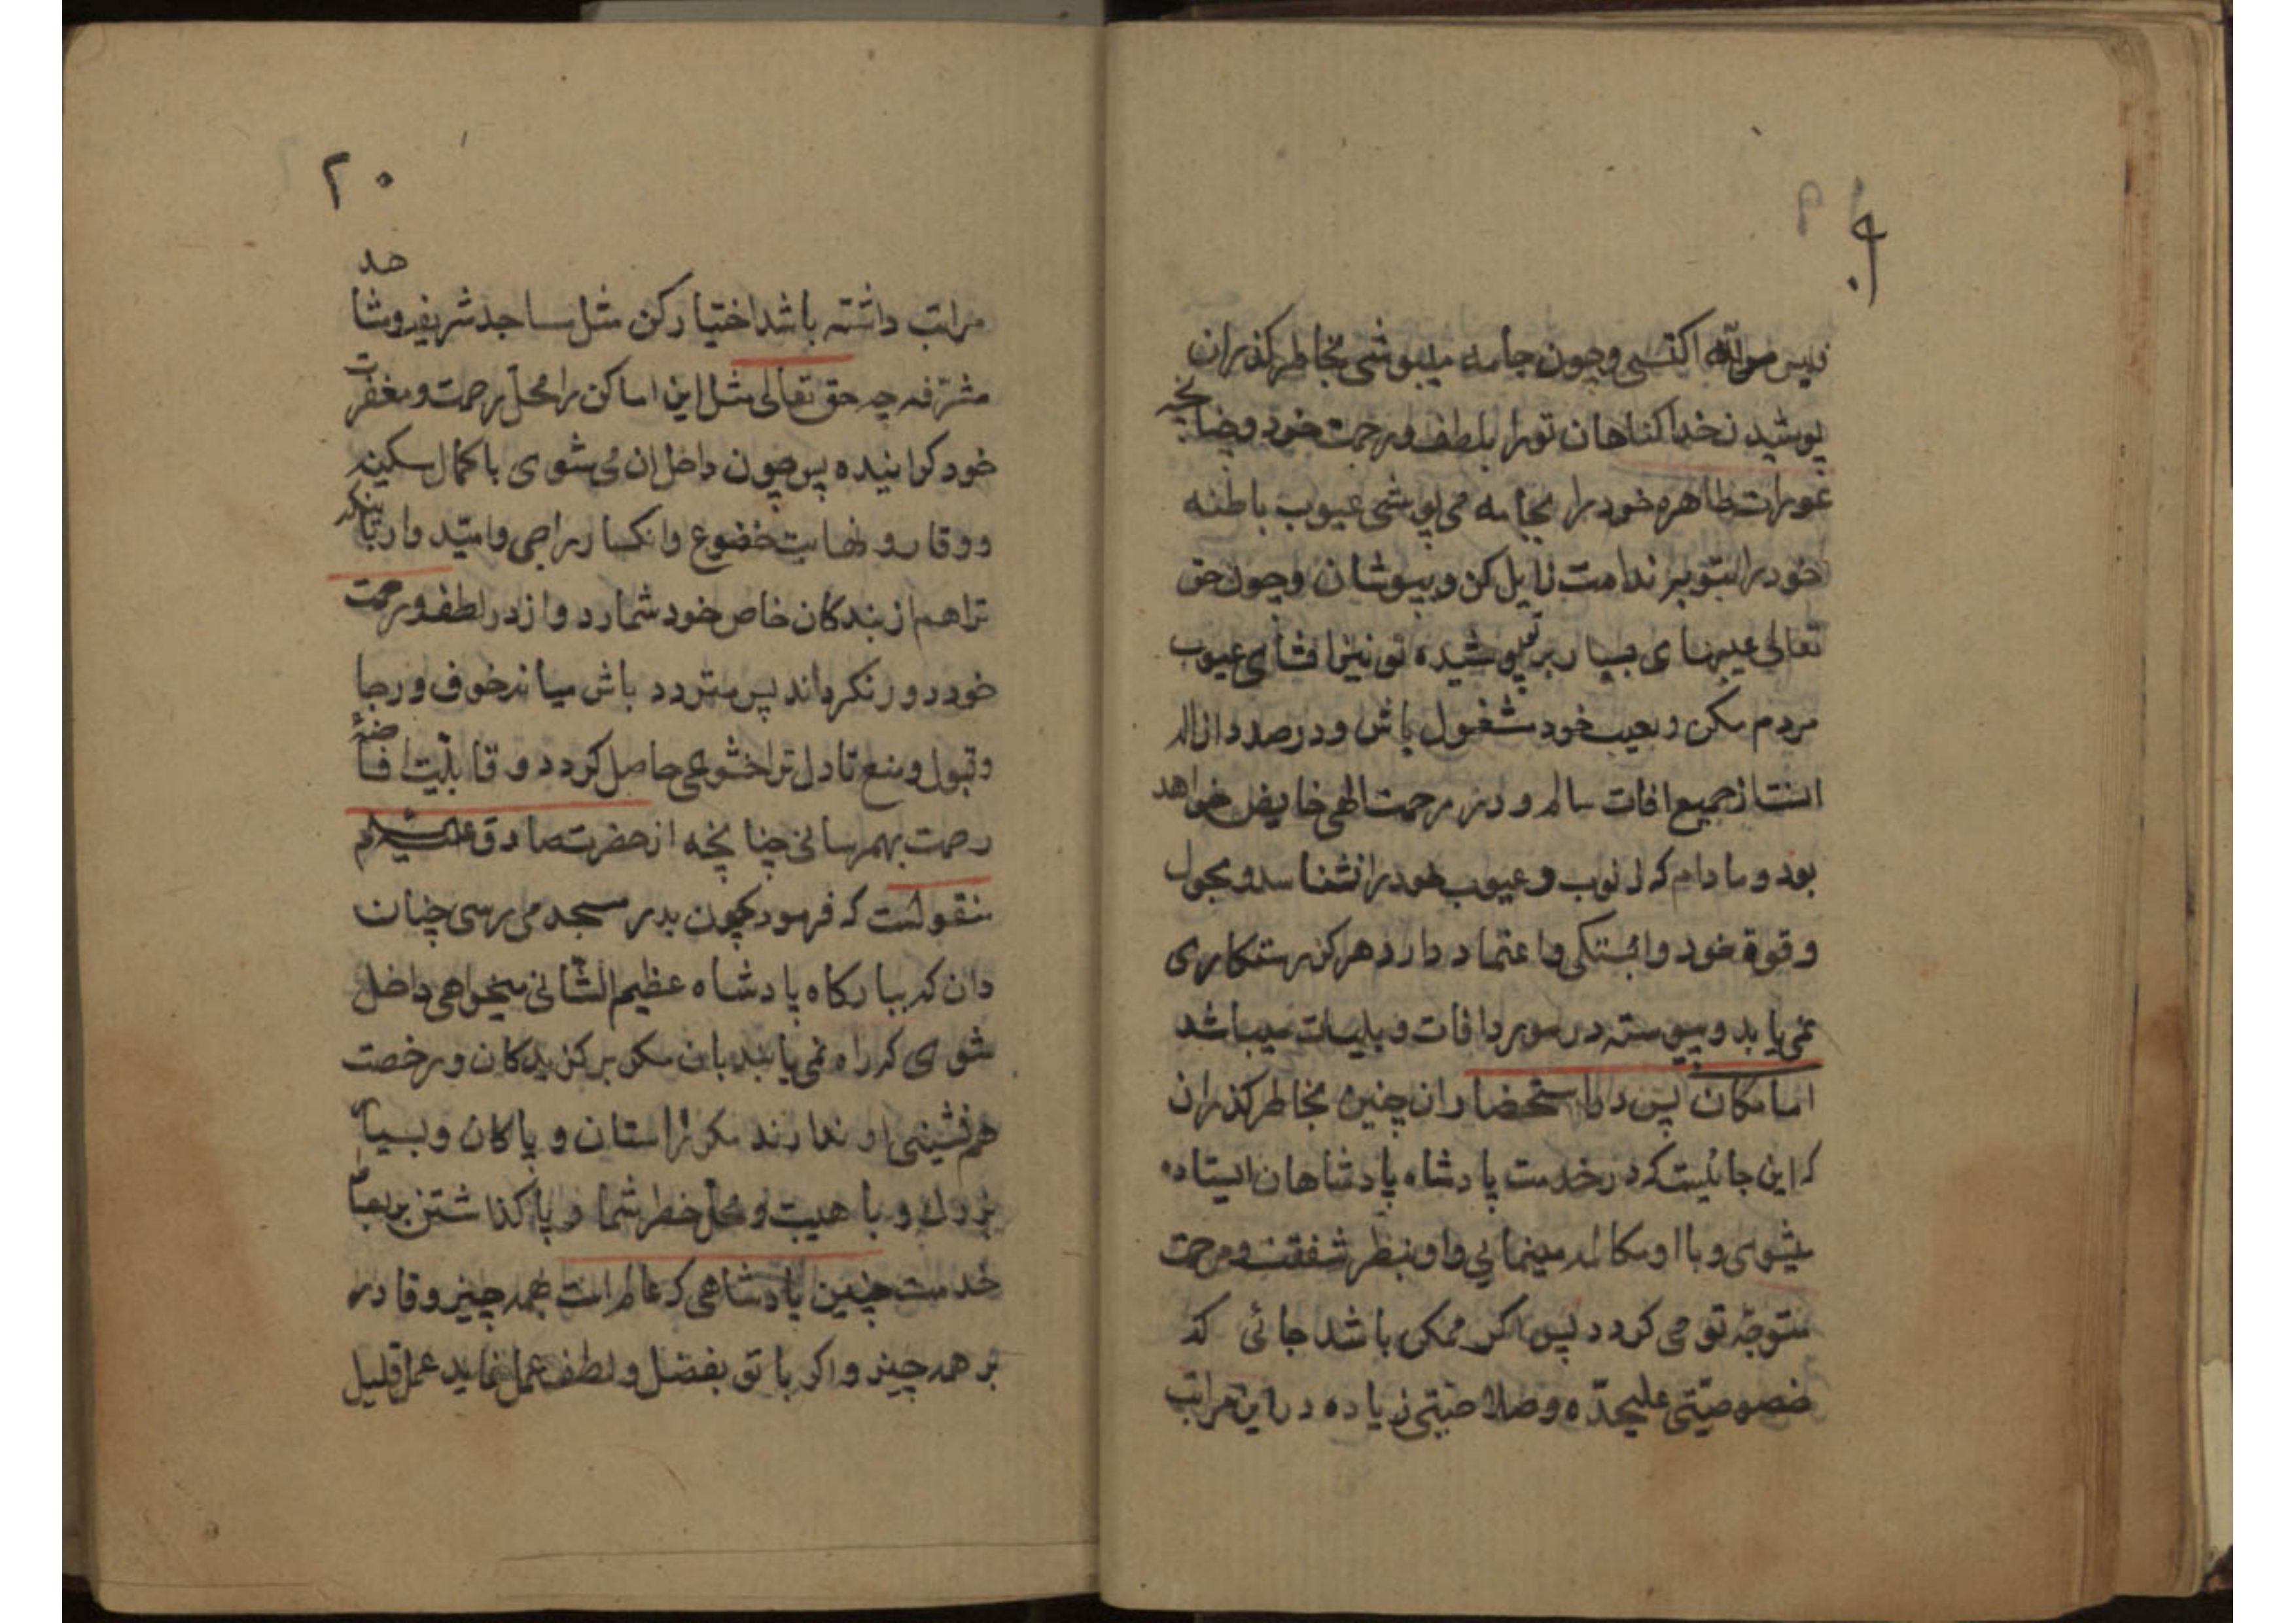 پوشیدن خدا کناهان تورا بلطف ورحمت خود وچنانچه
عورات ظاهره خود را بجامه می پوشی عیوب باطنه
خود را بتوبه ندامت زایل کن و بپوشان وچون حق
تعالی عیبهای بسیار بر تو پوشیده تو نیز افشای عیوب
مردم مکن و بعیب خود مشغول باش و درصدد ازاله
انست از جمیع افات سالم و در رحمت الهی خایض خواهد
بود و ما دام که ذنوب و عیوب خود را نشناسد و بحول
وقوة خود وابستکی و اعتماد دارد هرکز رستکاری
نمی یابد و پیوسته در مورد افات و بلیات میباشد
اما مکان پس در استحضار ان چنین بخاطر کذران
که این جائیست که در خدمت پادشاه پادشاهان ایستاده
میشوی و با او مکالمه مینمایی و او بنظر شفقت و مرحمت
متوجّه تو می کردد پس اکر ممکن باشد جائی که
خصوصیّتی علیحدّه و صلاحیّتی زیاده در این مراتب
۲۰
مراتب داشته باشد اختیار کن مثل مساجد شریفه و مشاهد
مشرّفه چه حق تعالی مثل این اماکن را محلّ رحمت و مغفرت
خود کرانیده پس چون داخل ان می شوی با کمال سکینه
و وقار و نهایت خضوع و انکسار راجی و امیّدوار باش که
تراهم از بندکان خاص خود شمارد و از در لطف و رحمت
خود دور نکرداند پس متردد باش میانه خوف و رجا
و قبول و منع تا دل ترا خشوعی حاصل کردد و قابلّیت افاضهٔ
رحمت بهمرسانی چنانچه از حضرت صادق علیه السلام
منقولست که فرمود چون بدر مسجد می رسی چنان
دان که ببارکاه پادشاه عظیم الشّانی میخواهی داخل
شوی که راه نمی یابند بان مکر برکزیدکان و رخصت
هم نشینی او ندارند مکر راستان و پاکان و بسیار
بزرک و با هیبت و محل خطر شمار و پا کذاشتن بر بساط
خدمت چنین پادشاهی که عالم است بهمه چیز و قادر
بر همه چیز و اکر با تو بفضل و لطف عمل نماید عمل قلیل